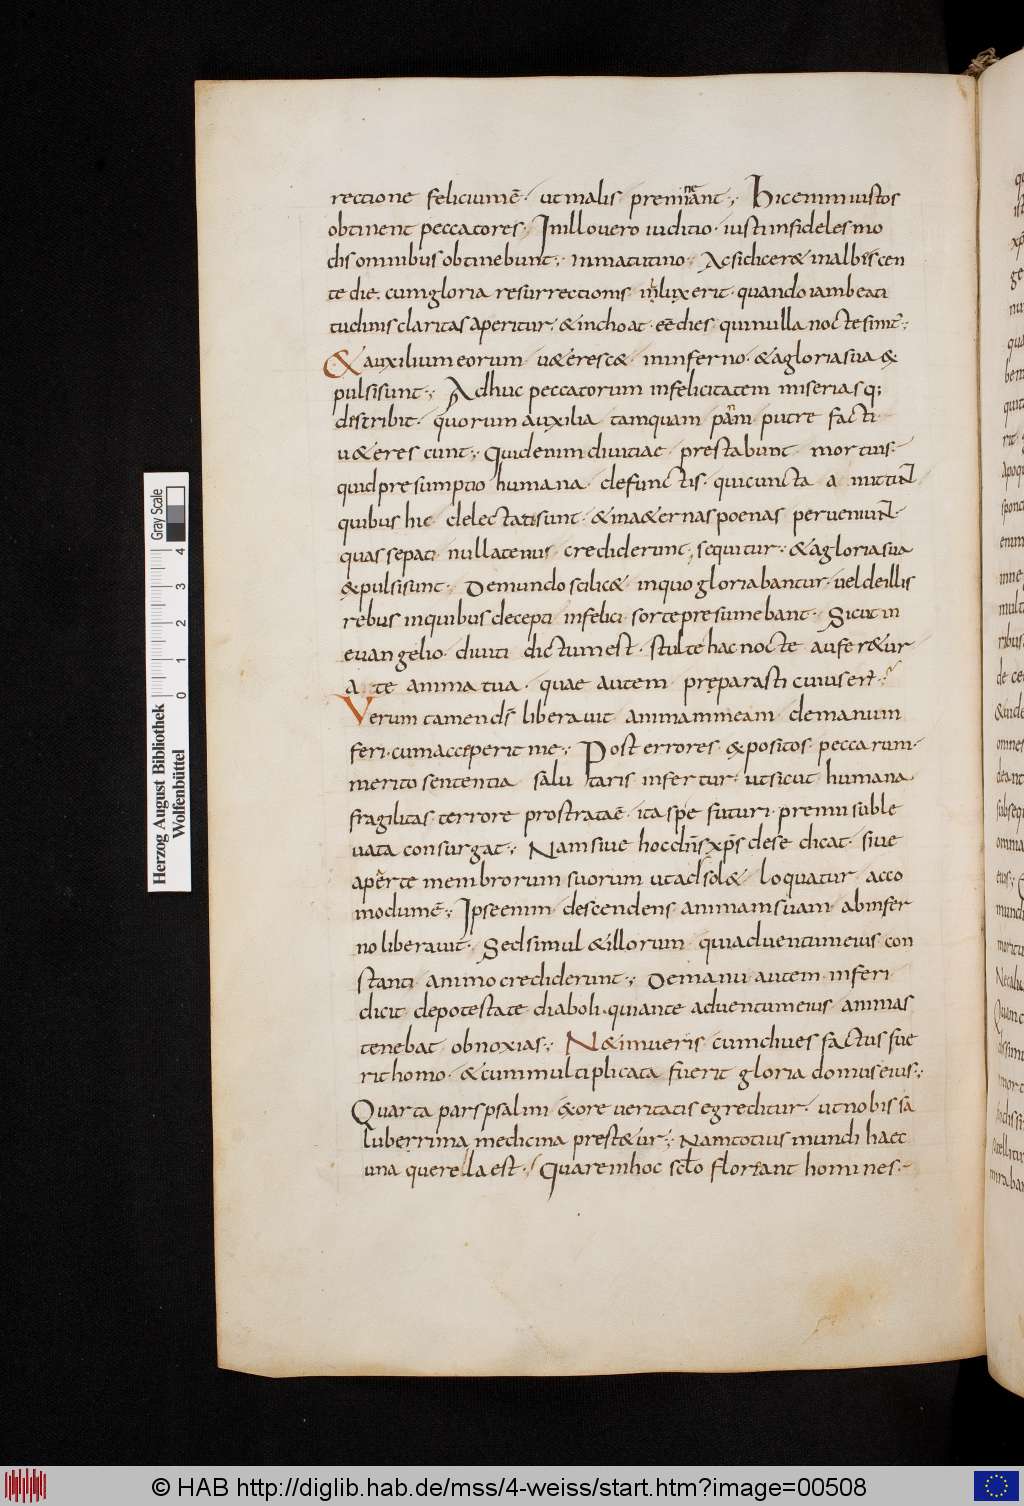 rectione felicium ē· ut malis premineant·; Hic enim iustos
obtinent peccatores· In illo uero iuditio· iusti infideles mo
dis omnibus obtinebunt·; In matutino·; Ac si dicer& in albiscen
te die· cum gloria resurrectionis inluxerit· quando iam beati
tudinis claritas aperitur· & inchoat· eē dies· qui nulla nocte finit̄·;
& auxilium eorum u&eresc& in inferno· & a gloria sua &
pulsi sunt·; Adhuc peccatorum infelicitatem miseriasq;
describit· quorum auxilia tamquam putre facti
u&eres cunt·; Quid enim diuitiae prestabunt mortuis·
quid presumptio humana defunctis· qui cuncta amittuNt
quibus hic delectati sunt· & in a&ernas poenas perueniuNt·
quas se pati nullatenus crediderunt; sequitur· & a gloria sua
&pulsi sunt· De mundo scilic& in quo gloriabantur· uel de illis
rebus in quibus decepti infelici sorte presumebant· Sicut in
euangelio diuiti dictum est· stulte hac nocte aufer&ur
a te anima tua· quae autem preparasti cuius ert·
Verum tamen ds̄ liberauit animam meam de manu in
feri· cum acceperit me·; Post errores &positos peccarum·
merito sententia salutaris infertur· ut sicut humana
fragilitas terrore prostrata ē· ita spe futuri premii suble
uata consurgat·; Nam siue hoc dn̄s xp̄s de se dicat· siue
aperte membrorum suorum ut ad sol& loquatur acco
modum ē·; Ipse enim descendens animam suam ab infer
no liberauit· Sed simul & illorum qui aduentum eius con
stanti animo crediderunt·; De manu autem inferi
dicit de potestate diaboli· qui ante aduentum eius animas
tenebat obnoxias·; Ne timueris cum diues factus fue
rit homo· & cum multiplicata fuerit gloria domus eius·;
Quarta pars psalmi &ore ueritatis egreditur· ut nobis sa
luberrima medicina prest&ur·; Nam totius mundi haec
una querella est· Quare in hoc scl̄o floreant homines·
Herzog August Bibliothek
Wolfenbüttel
0 1 2 3 4
Gray Scale
© HAB http://diglib.hab.de/mss/4-weiss/start.htm?image=00508